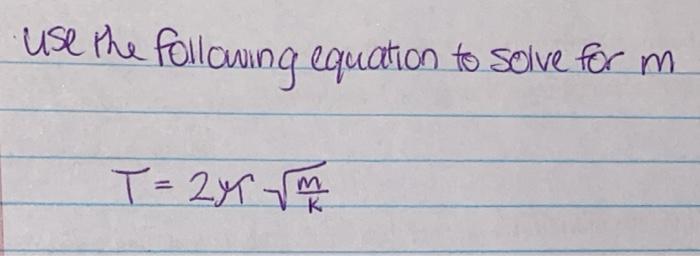 use the following equation to solve for m
T = 2π √(m/k)